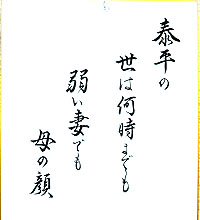 泰平の
世は何時までも
弱い妻でも
母の顔